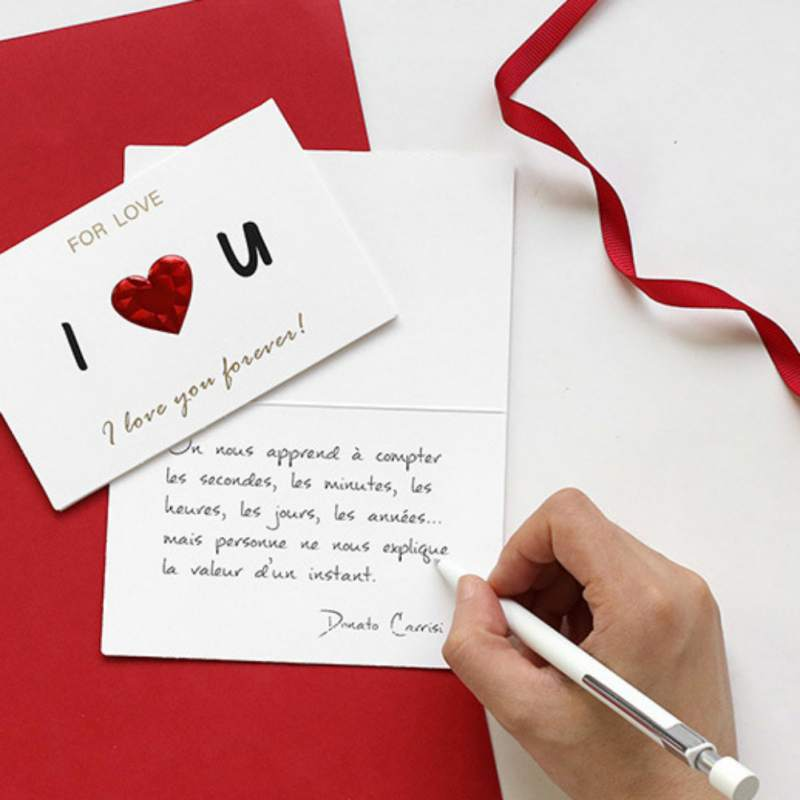 FOR LOVE
I U
I love you forever!
On nous apprend à compter
les secondes, les minutes, les
heures, les jours, les années...
mais personne ne nous explique
la valeur d'un instant.
Donato Carrisi